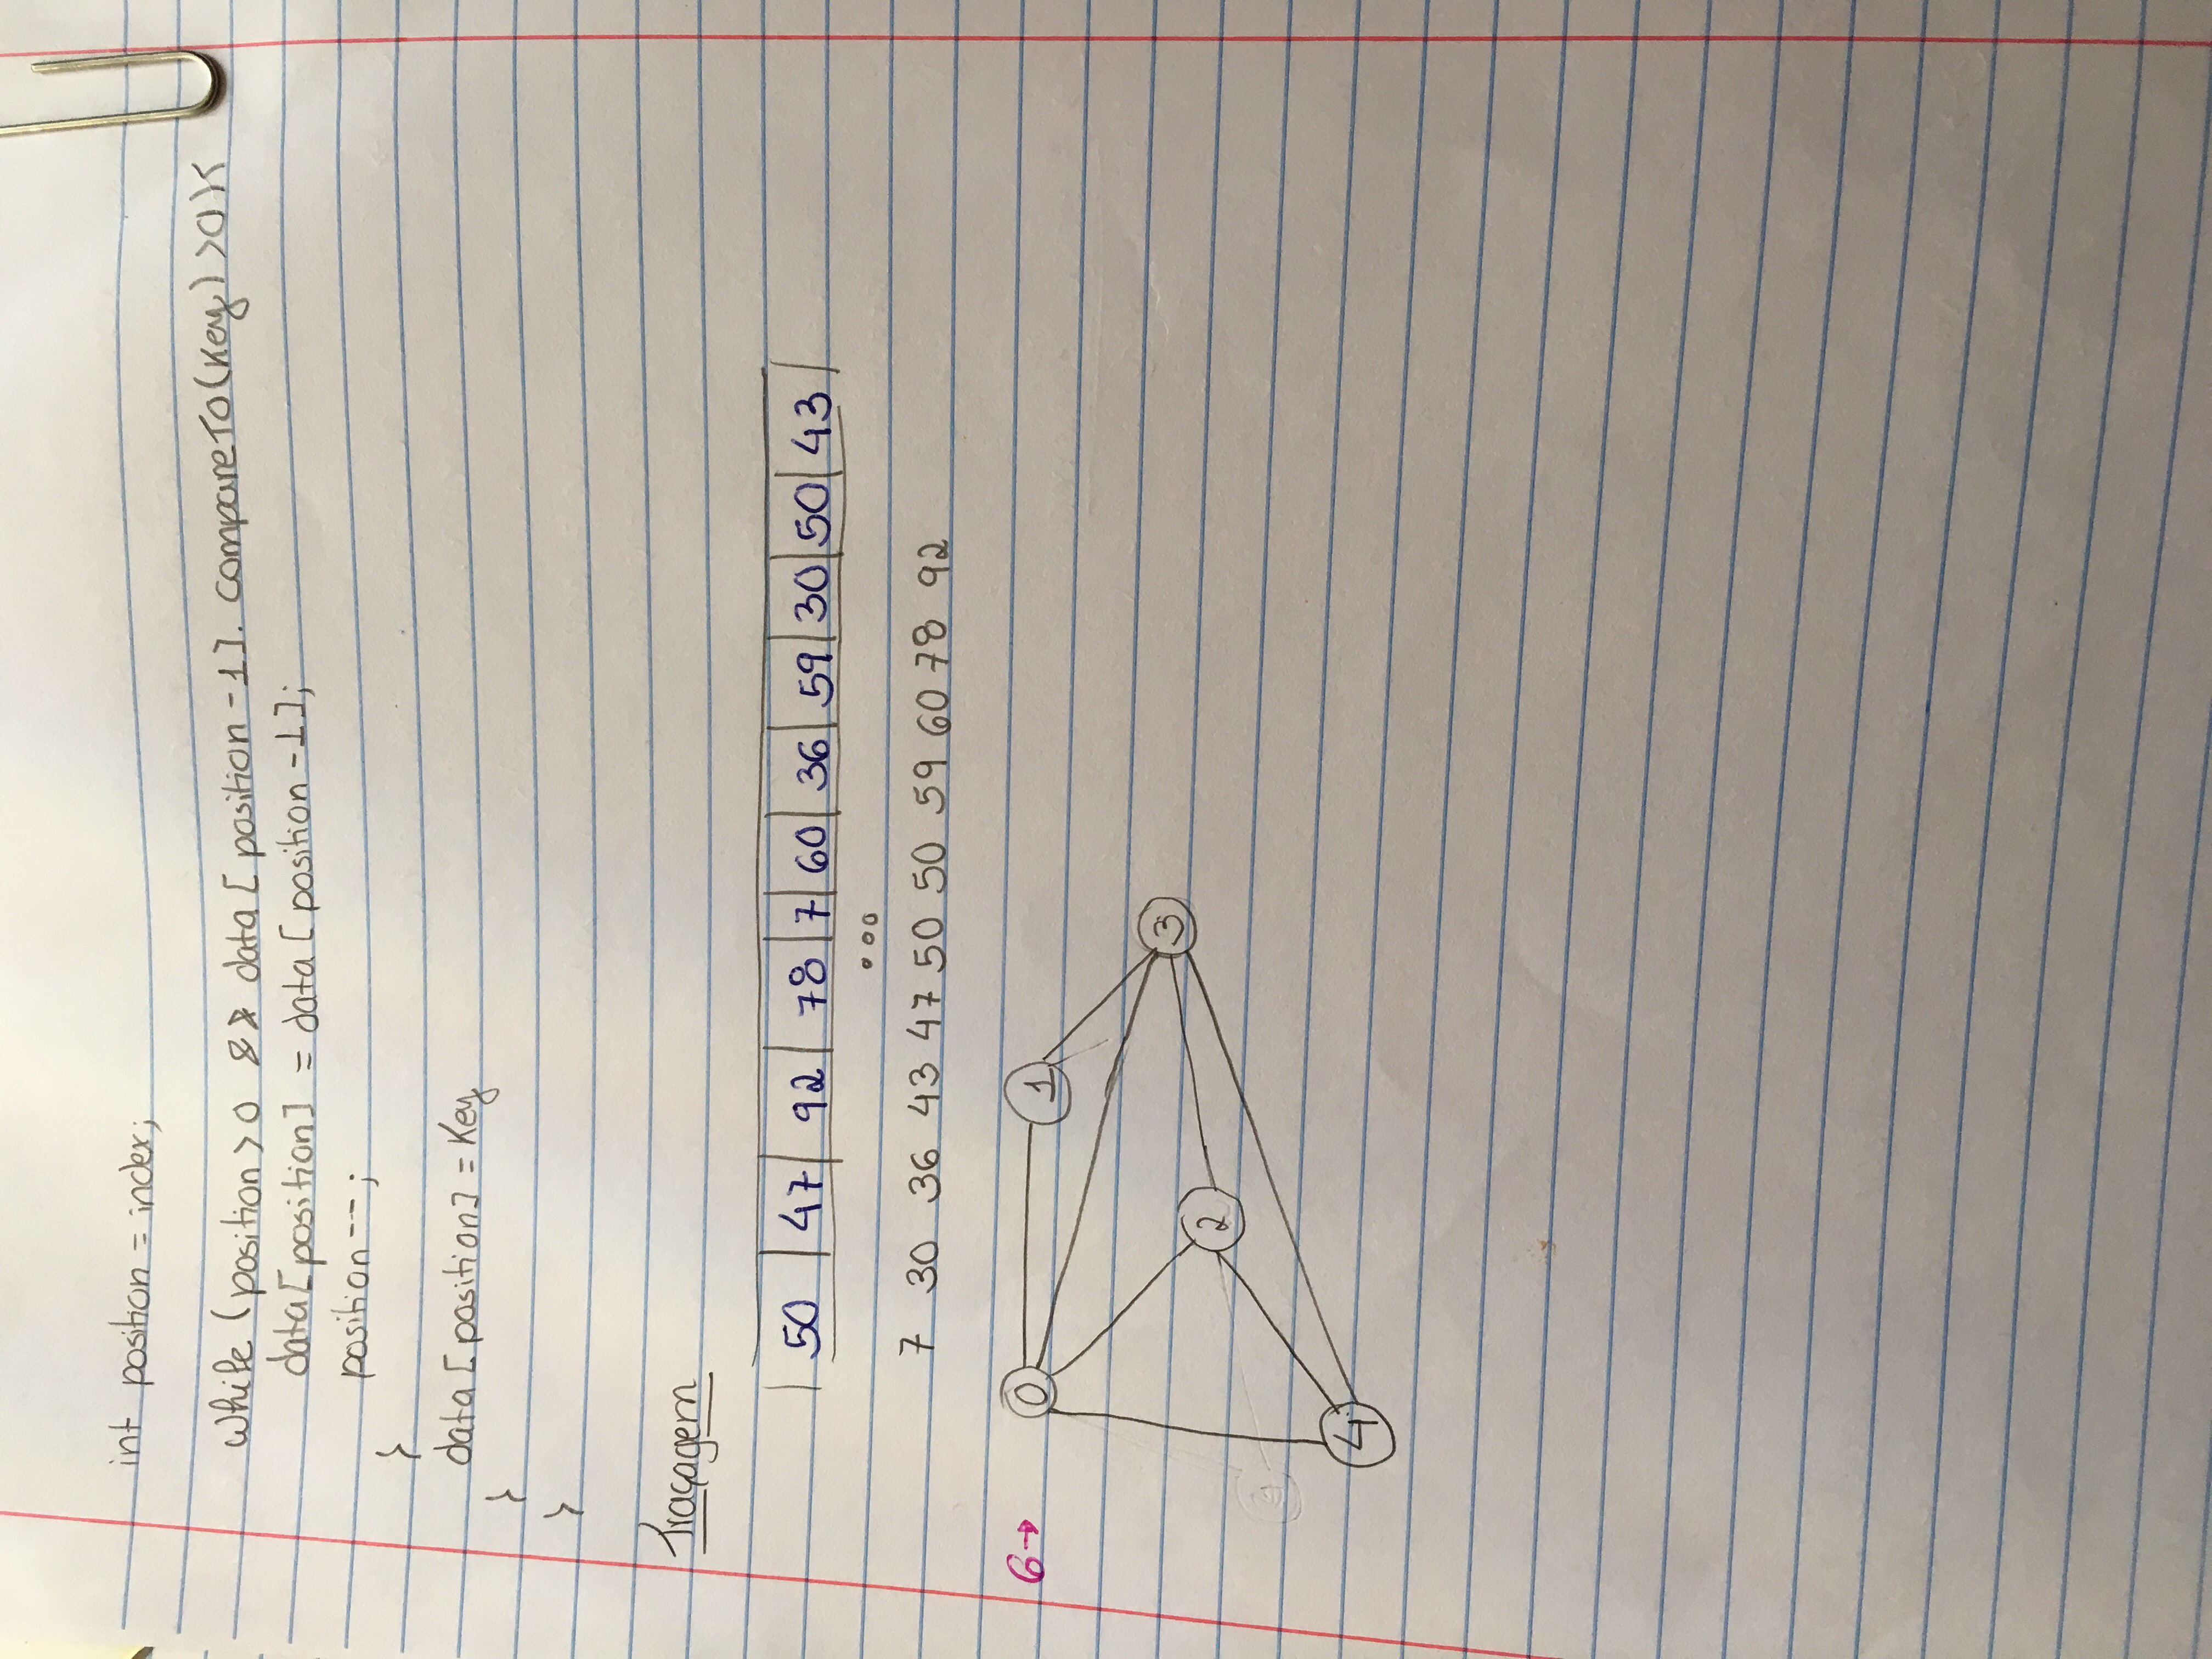 int position = index;
while (position > 0 && data[position-1].compareTo(Key) > 0){
data[position] = data[position-1];
position--;
}
data[position] = Key
}
}
Traçagem
50 | 47 | 92 | 78 | 7 | 60 | 36 | 59 | 30 | 50 | 43
...
7 30 36 43 47 50 50 59 60 78 92
6→
0 1
3
2
4